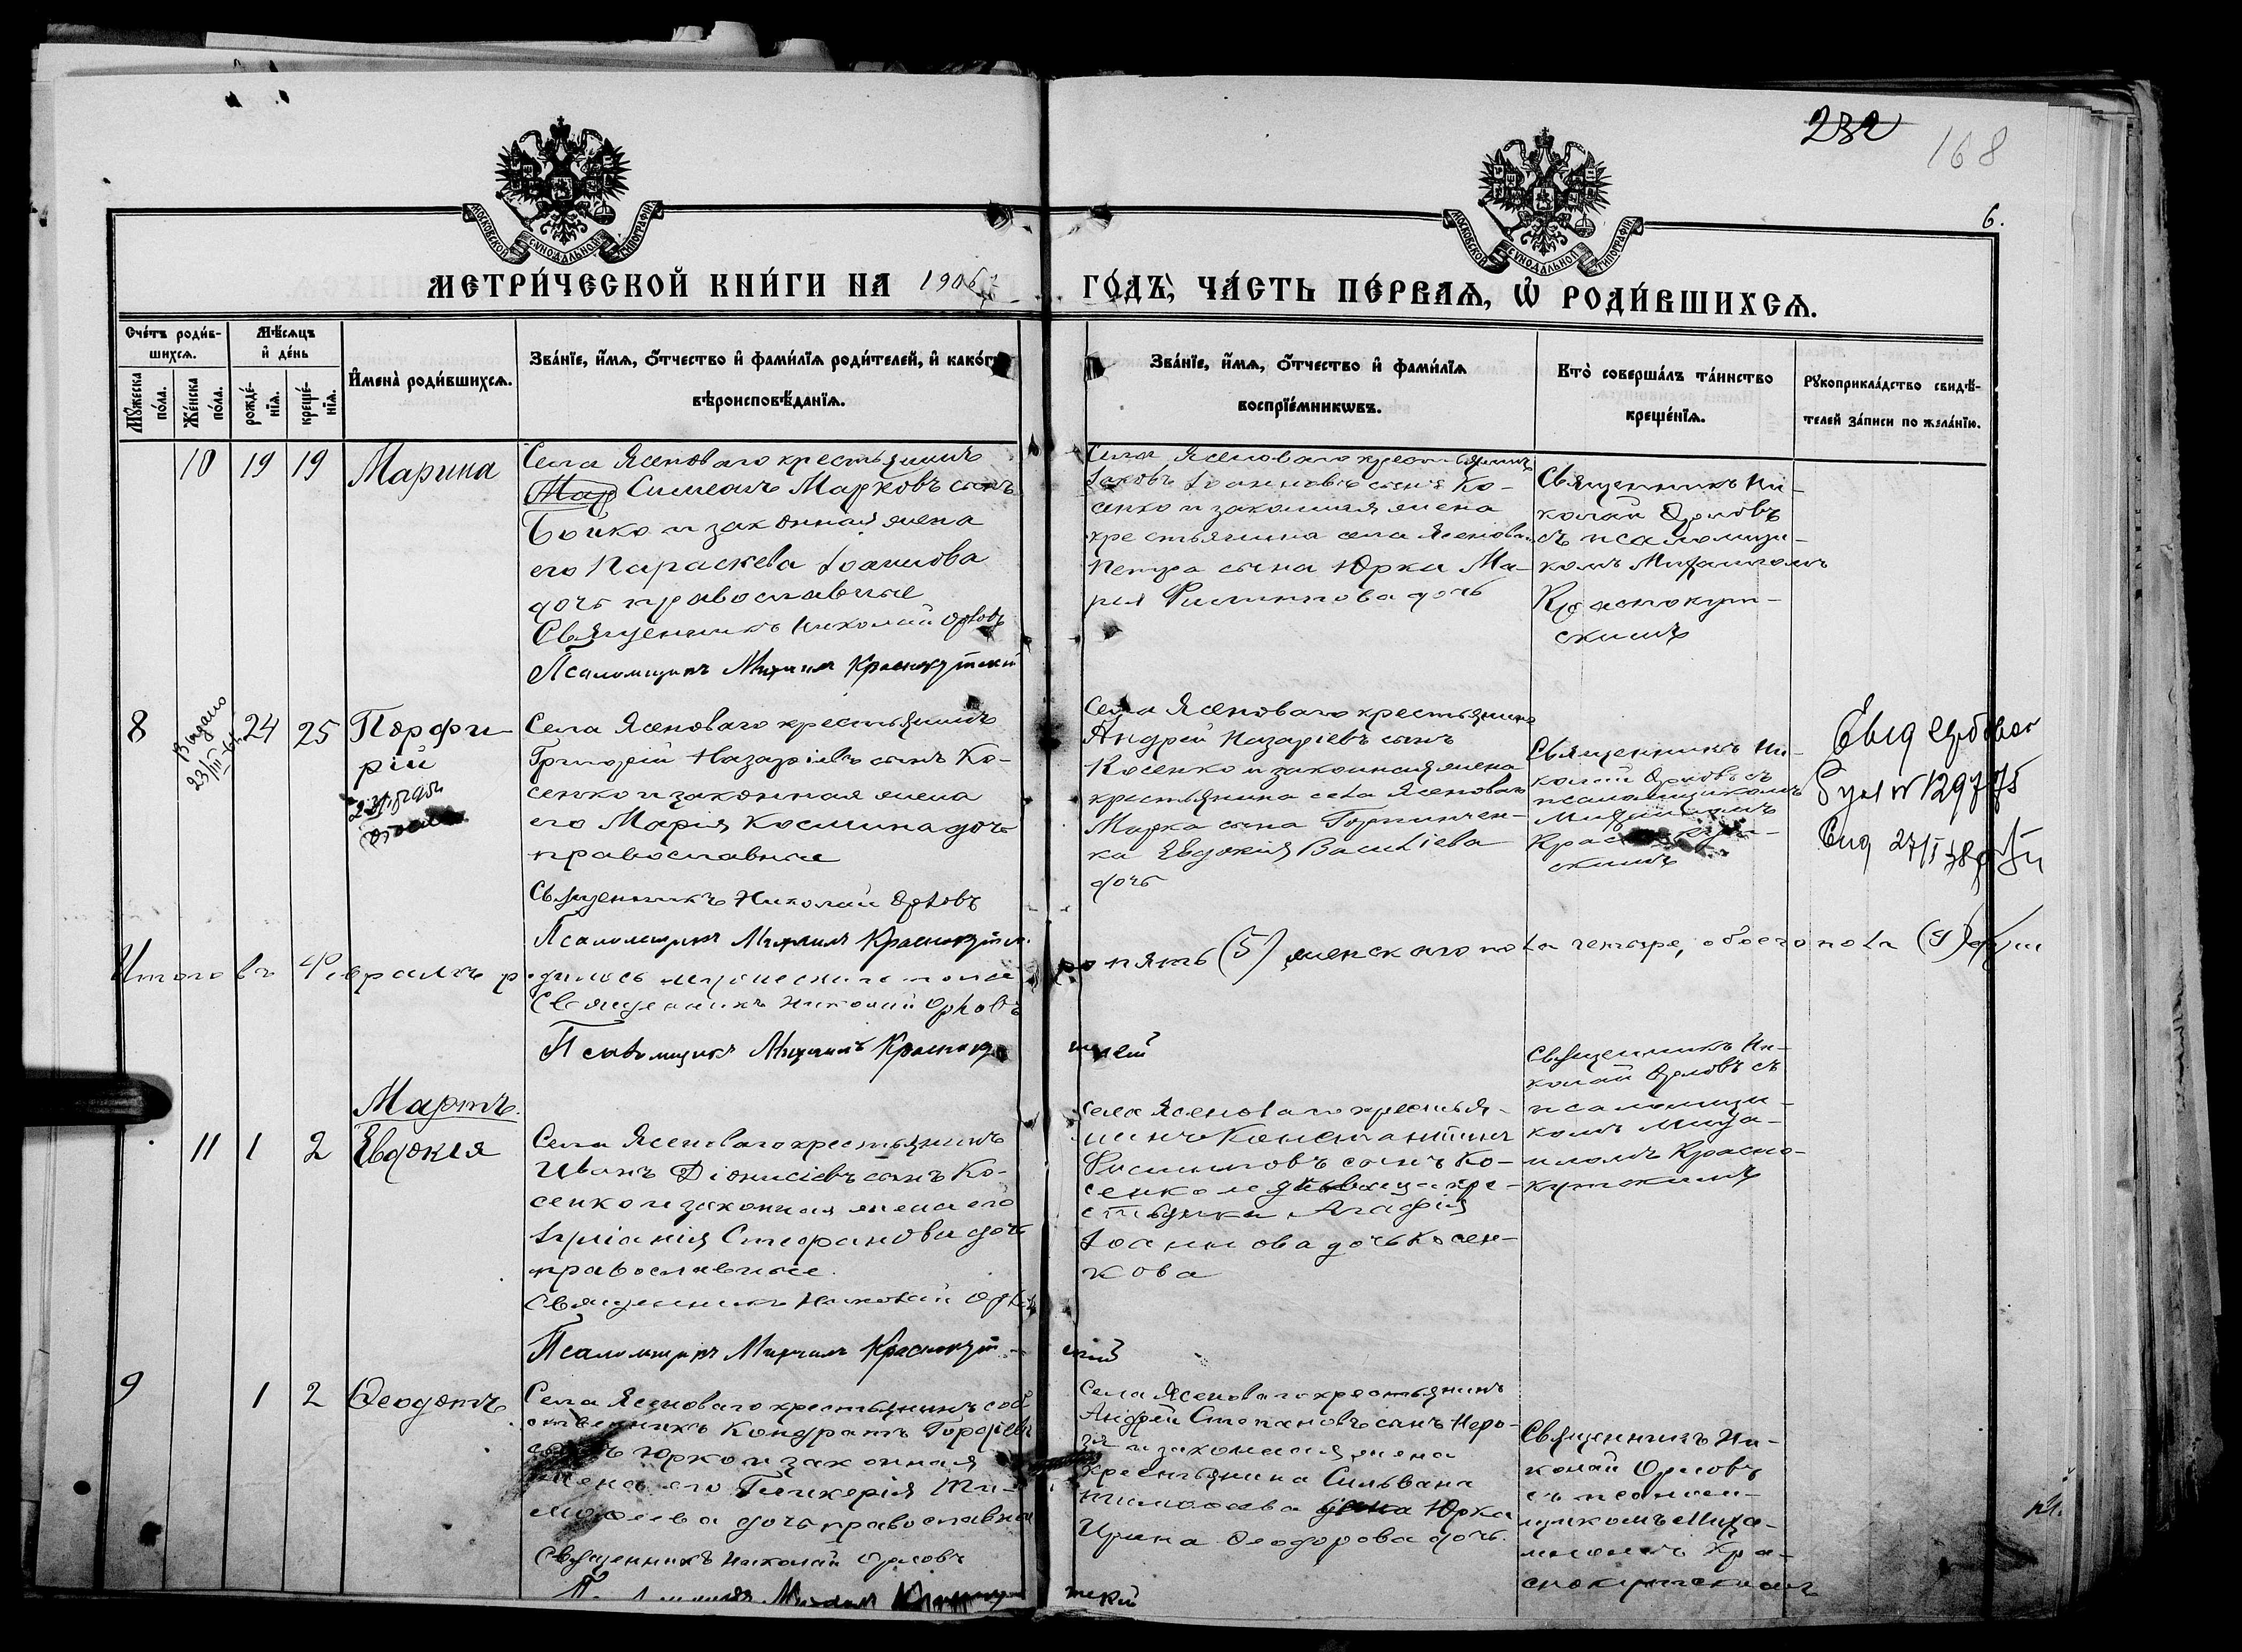 232
168
6.
МОСКОВСКОЙ СѴНОДАЛЬНОЙ ТИПОГРАФІИ
МОСКОВСКОЙ СѴНОДАЛЬНОЙ ТИПОГРАФІИ
МЕТРИ́ЧЕСКОЙ КНИ́ГИ НА 1906
ГО́ДЪ, ЧА́СТЬ ПЕ́РВАѦ, Ѡ҆ РОДИ́ВШИХСѦ.
Сче́тъ роди́в-
шихсѧ.
Мѣ́сѧцъ
и҆ де́нь
Мꙋ́жеска
по́ла.
Же́нска
по́ла.
рожде́-
нїѧ.
креще́-
нїѧ.
И҆мена̀ роди́вшихсѧ.
Зва́нїе, и҆́мѧ, ѻ҆́тчество и҆ фами́лїѧ роди́телей, и҆ како́гѡ
вѣроисповѣ́данїѧ.
Зва́нїе, и҆́мѧ, ѻ҆́тчество и҆ фами́лїѧ
воспрїе́мникѡвъ.
Кто̀ соверша́лъ та́инство
креще́нїѧ.
Рꙋкоприкла́дство свидѣ́-
телей за́писи по жела́нїю.
10 19 19 Марина
Села Ясеноваго крестьянинъ
Мар Симеонъ Марковъ сынъ
Бойко и законная жена
его Параскева Іоаннова
дочь православные
Священникъ Николай Орловъ
Псаломщикъ Михаилъ Краснокутскій
Села Ясеноваго крестьянинъ
Іаковъ Іоанновъ сынъ Ко-
сенко и законная жена
крестьянина села Ясенова
Петра сына Юрка Ма-
рія Филиппова дочь
Священникъ Ни-
колай Орловъ
съ псаломщи-
комъ Михаиломъ
Краснокут-
скимъ
8 24 25 Порфи-
рій
Выдано
23/III
Села Ясеноваго крестьянинъ
Григорій Назаріевъ сынъ Ко-
сенко и законная жена
его Марія Космина дочь
православные
Священникъ Николай Орловъ
Псаломщикъ Михаилъ Краснокутск.
Села Ясеноваго крестьянинъ
Андрей Назаріевъ сынъ
Косенко и законная жена
крестьянина села Ясеноваго
Марка сына Горпинчен-
ка Евдокія Василіева
дочь
Священникъ Ни-
колай Орловъ съ
псаломщикомъ
Михаиломъ
Краснокут-
скимъ
Итого въ Февралѣ родилось мужескаго пола
ро пять (5) женскаго пола четыре, обоего пола (9) душ
Священникъ Николай Орловъ
Псаломщикъ Михаилъ Краснокутскій
Мартъ.
11 1 2 Евдокія
Села Ясеноваго крестьянинъ
Иванъ Діонисіевъ сынъ Ко-
сенко и законная жена его
Іуліанія Стефанова дочь
православные.
Священникъ Николай Орловъ
Псаломщикъ Михаилъ Краснокут-
скій
Села Ясеноваго крестья-
нинъ Константинъ
Филипповъ сынъ Ко-
сенко и дѣвица кре-
стьянка Агафія
Іоаннова дочь Косен-
кова
Священникъ Ни-
колай Орловъ съ
псаломщи-
комъ Миха-
иломъ Красно-
кутскимъ
9 1 2 Ѳеодотъ
Села Ясеноваго крестьянинъ соб
ственникъ Кондратъ Гордіевъ
сынъ Юрко и законная
жена его Гликерія Ти-
моѳеева дочь православные
Священникъ Николай Орловъ
Села Ясеноваго крестьянинъ
Андрей Степановъ сынъ
и законная жена
крестьянина Сильвана
Тимоѳеева Юрка
Ирина Ѳеодорова дочь.
Священникъ Ни-
колай Орловъ
съ псалом-
щикомъ Миха-
иломъ Кра-
снокутскимъ